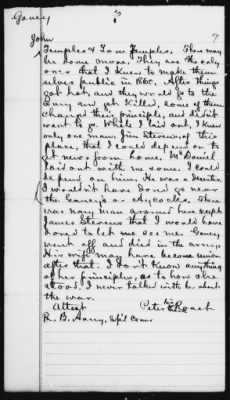 Ganey
5
7
John
Temples & Tom Temples. There may
be some more. They are the only
ones that I knew to make them
selves public in 1860. After things
got hot, and they would go to the
army and get killed, some of them
changed their principle, and didn't
want to go. While I laid out, I knew
only one man, Jim Stevens, of this
place, that I could depend on to
get news from home. McDaniel
laid out with me some. I could
depend on him. He was a
I wouldn't have done go near
the Ganey's or Aycocks. There
was nary man around here except
James Stevens that I would have
dared to let me see me. Ganey
went off and died in the army.
His wife may have become union
after that. I don't know anything
of her principles, as to how she
stood. I never talked with her about
the war.
Attest
his
Peter Roach
R. B. Avery, Sp'l Comr